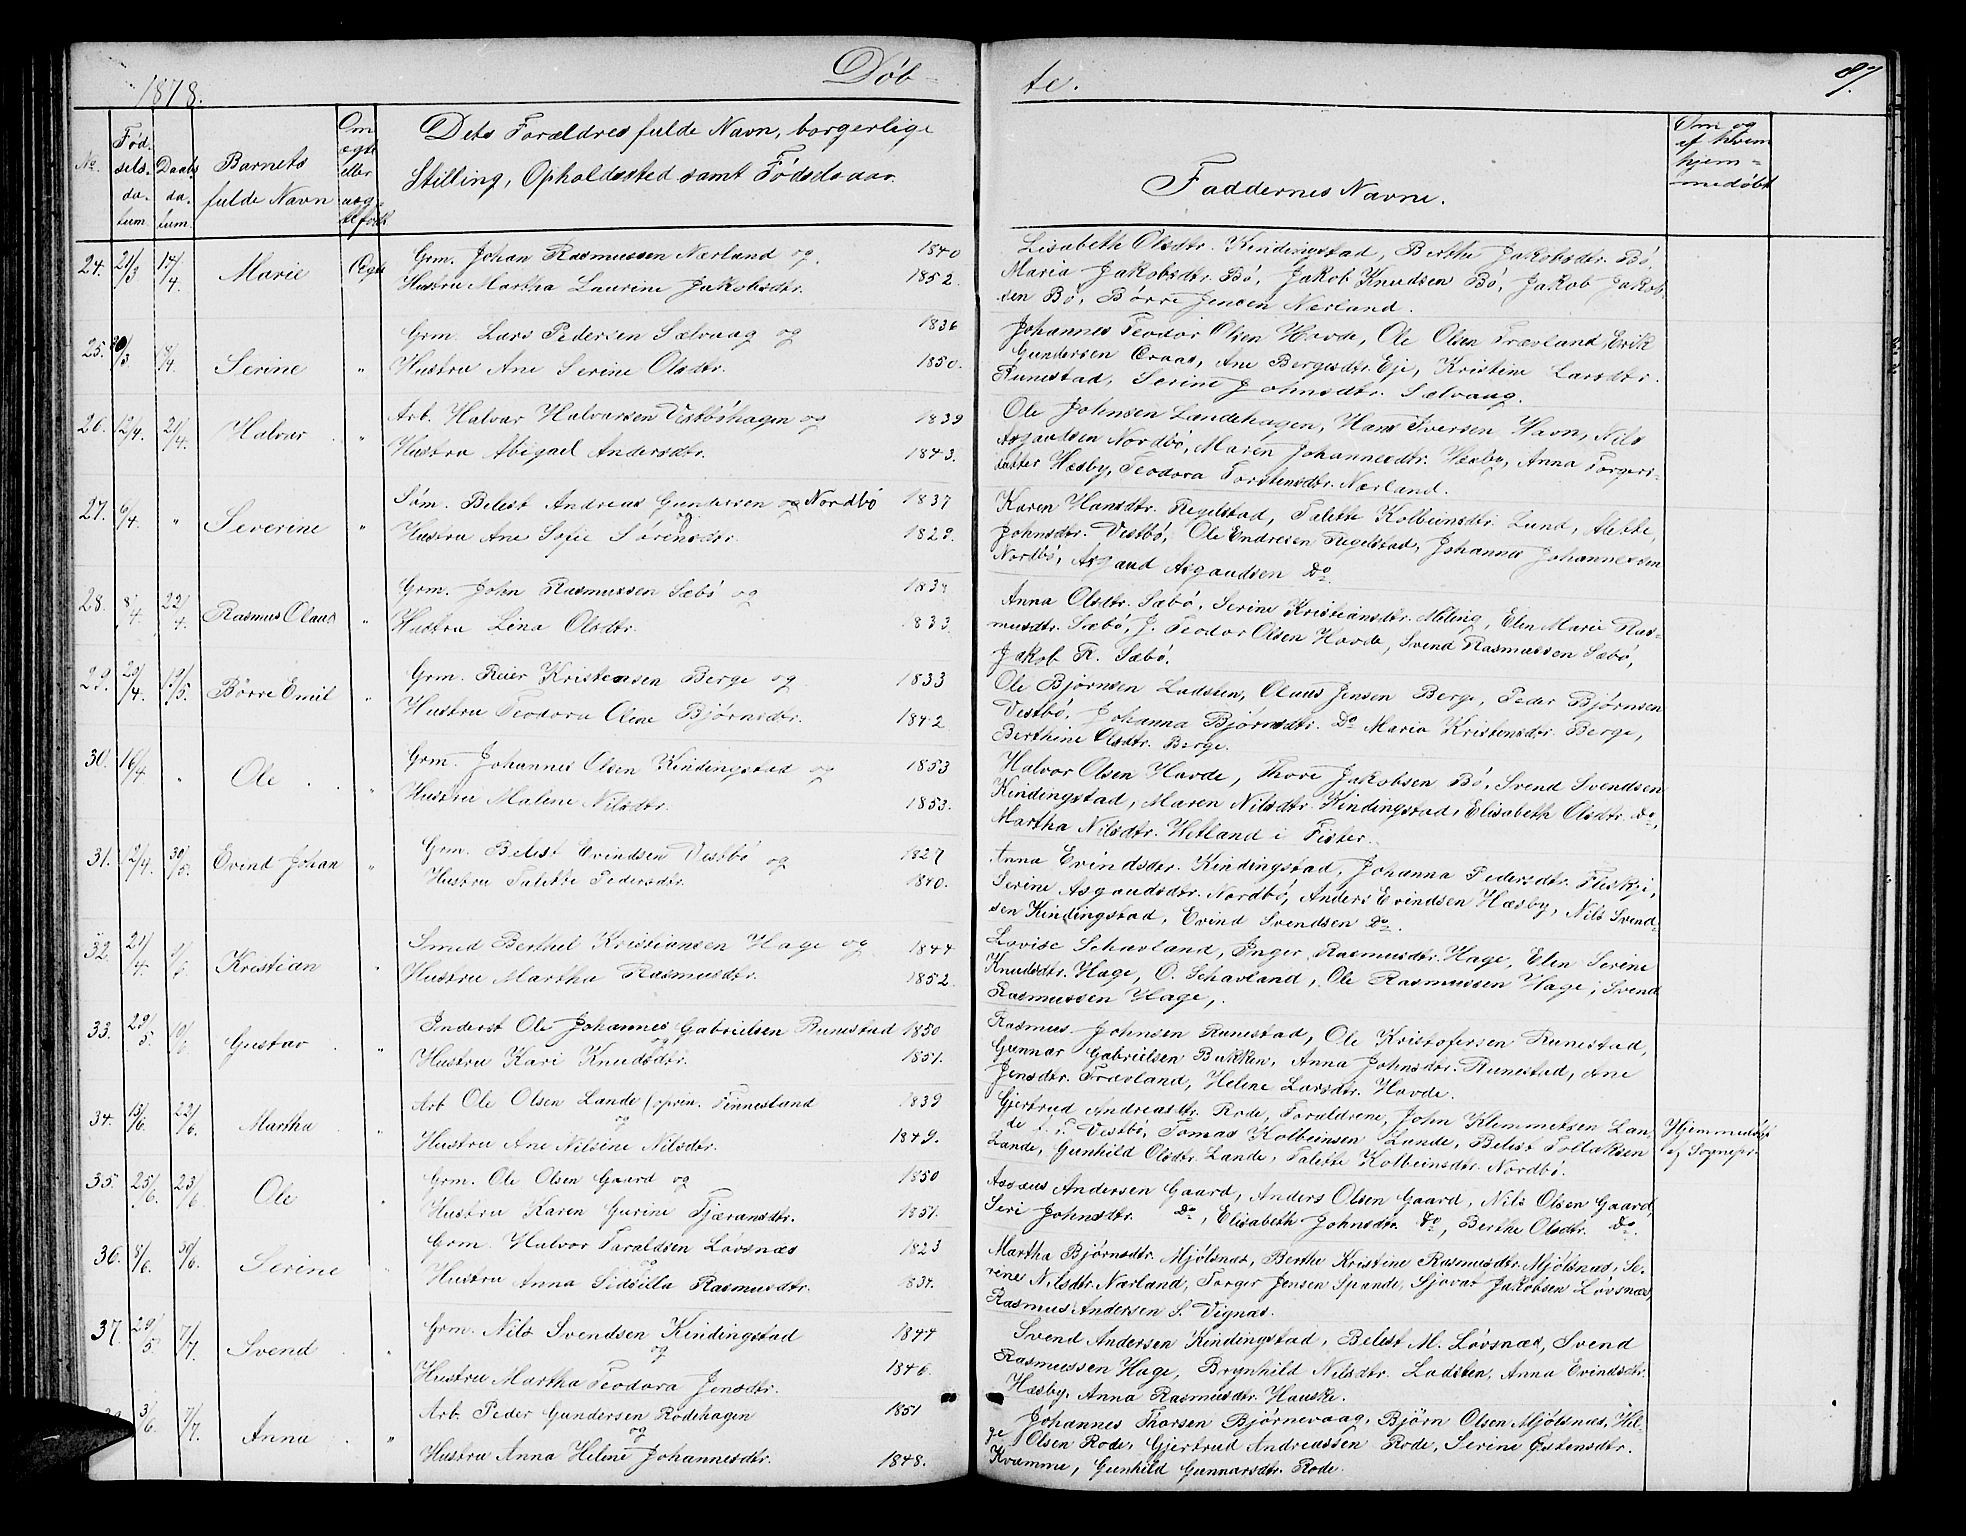 1878.
Døb-
te.
87.
No.
Fød-
sels-
da-
tum.
Daabs
da-
tum.
Barnets
fulde Navn
Om
ægte
eller
uæg-
tefødt
Dets Forældres fulde Navn, borgerlige
Stilling, Opholdssted samt Fødselsaar.
Faddernes Navne.
Om og
af hvem
hjem-
medøbt
24. 21/3 14/4. Marie Ægte
Grm. Johan Rasmussen Nærland og 1840
Hustru Martha Laurine Jakobsdtr. 1852.
Lisabeth Olsdtr. Kindingstad, Berthe Jakobsdtr. Bø,
Maria Jakobsdtr. Bø, Jakob Knudsen Bø, Jakob Jakob-
sen Bø, Børre Jensen Nærland.
25. /3 18/4. Serine "
Grm. Lars Pedersen Sælvaag og 1836
Hustru Ane Serine Olsdtr. 1850.
Johannes Teodor Olsen Hovde, Ole Olsen Trævland, Erik
Gundersen Aaas, Ane Bergesdtr. Eje, Kristine Larsdtr.
Runestad, Serine Johnsdtr. Sælvaag.
26. 12/4. 21/4. Halvar "
Arb. Halvar Halvarsen Vestbøhagen og 1839
Hustru Abigael Andersdtr. 1843.
Ole Johnsen Landehagen, Hans Iversen Havn, Nils
Asgautsen Nordbø, Maren Johannesdtr. Hæsby, Anna Torgers-
datter Hæsby, Teodora Torstensdtr. Nærland.
27. 6/4. " Severine "
Søm. Belest Andreas Gundersen og Nordbø 1837
og
Hustru Ane Sofie Sørensdtr. 1829.
Karen Hansdtr. Tegelstad, Talette Kolbeinsdtr. Lund, Alette
Johnsdtr. Vestbø, Ole Endresen Tegelstad, Johannes Johannessen
Nordbø, Asgaud Asgaudsen Do.
28. 8/4. 22/4 Rasmus Olaus "
Grm. John Rasmussen Sæbø og
Hustru Lina Olsdtr. 1833
Anna Olsdtr. Sæbø, Serine Kristiansdtr. Meling, Elen Marie Ras-
musdtr. Sæbø, J. Teodor Olsen Hovde, Svend Rasmussen Sæbø,
Jakob R. Sæbø.
29. 23/4 /5. Børre Emil "
Grm. Reier Kristensen Berge og 1833
Hustru Teodora Oline Bjørnsdtr. 1842
Ole Bjørnsen Ladsten, Olaus Jensen Berge, Peder Bjørnsen
Vestbø, Johanna Bjørnsdtr. Do Maria Kristensdtr. Berge,
Berthine Olsdtr. Berge.
30. 16/4 " Ole "
Grm. Johannes Olsen Kindingstad og 1853
Hustru Malene Nilsdtr. 1853.
Halvor Olsen Hovde, Thore Jakobsen Bø, Svend Svendsen
Kindingstad, Maren Nilsdtr. Kindingstad, Elisabeth Olsdtr. Do,
Martha Nilsdtr. Hetland i Fister.
31. 12/4. 30/5. Evind Johan "
Grm. Belest Evindsen Vestbø og 1827
Hustru Talette Pedersdtr. 1840.
Anna Evindsdtr. Kindingstad, Johanna Pedersdtr.
Serine Asgaudsdtr. Nordbø, Anders Evindsen Hæsby, Nils Svend-
sen Kindingstad, Evind Svendsen Do.
32. 21/4 Kristian "
Smed Berthel Kristiansen Hage og 1844
Hustru Martha Rasmusdtr. 1852.
Lovise Schavland, Inger Rasmusdtr. Hage, Elen Serine
Knudsdtr. Hage, O. Schavland, Ole Rasmussen Hage, Svend
Rasmussen Hage,.
33. 29/5. /6 Gustav "
Inderst Ole Johannes Gabrielsen Runestad 1850
og
Hustru Kari Knudsdtr. 1851.
Rasmus Johnsen Runestad, Ole Kristofersen Runestad,
Gunnar Gabrielsen Bakken, Anna Johnsdtr. Runestad, Ane
Jensdtr. Trævland, Helene Larsdtr. Hovde.
34. 15/6. 22/6. Martha "
Arb. Ole Olsen Lande (oprin. Finnestand 1839
og
Hustru Ane Nilsine Nilsdtr. 1849.
Gjertrud Andreasdtr. Rode, Foraldrene, John Klemmetsen Lan-
de Vestbø, Tomas Kolbeinsen Lande, Belest Tollaksen
Lande, Gunhild Olsdtr. Lande, Talette Kolbeinsdtr. Nordbø.
Hjemmedøbt
af Sognepr.
35. 25/6. 23/6 Ole "
Grm. Ole Olsen Gaard og 1850
Hustru Karen Gurine Tjæransdtr. 1851.
Andersen Gaard, Anders Olsen Gaard, Nils Olsen Gaard,
Seri Johnsdtr. Do, Elisabeth Johnsdtr. Do, Berthe Olsdtr. Do.
36. 8/6. 30/6. Serine "
Grm. Halvor Taraldsen Løvsnæs 1823
og
Hustru Anna Sidsilla Rasmusdtr. 1834.
Martha Bjørnsdtr. Mjølsnæs, Berthe Kristine Rasmusdtr. Mjølsnæs, Se-
rine Nilsdtr. Nærland, Torger Jensen Spande, Sjovat Jakobsen Løvsnæs,
Rasmus Andersen S. Vignæs.
37. 29/5. 7/7. Svend "
Grm. Nils Svendsen Kindingstad 1844
og
Hustru Martha Teodora Jensdtr. 1846.
Svend Andersen Kindingstad, Belest M. Løvsnæs, Svend
Rasmussen Hage, Brynhild Nilsdtr. Ladsten, Anna Evindsdtr.
Hæsby, Anna Rasmusdtr. Hauske.
3/6. 7/7. Anna "
Arb. Peder Gundersen Rodehagen 1851
og
Hustru Anna Helene Johannesdtr. 1848.
Johannes Thorsen Bjørnevaag, Bjørn Olsen Mjølsnæs, Hel-
ge Olsen Rode, Gjertrud Andreassen Rode, Serine Østensdtr.
Kvamme, Gunhild Gunnarsdtr. Rode.